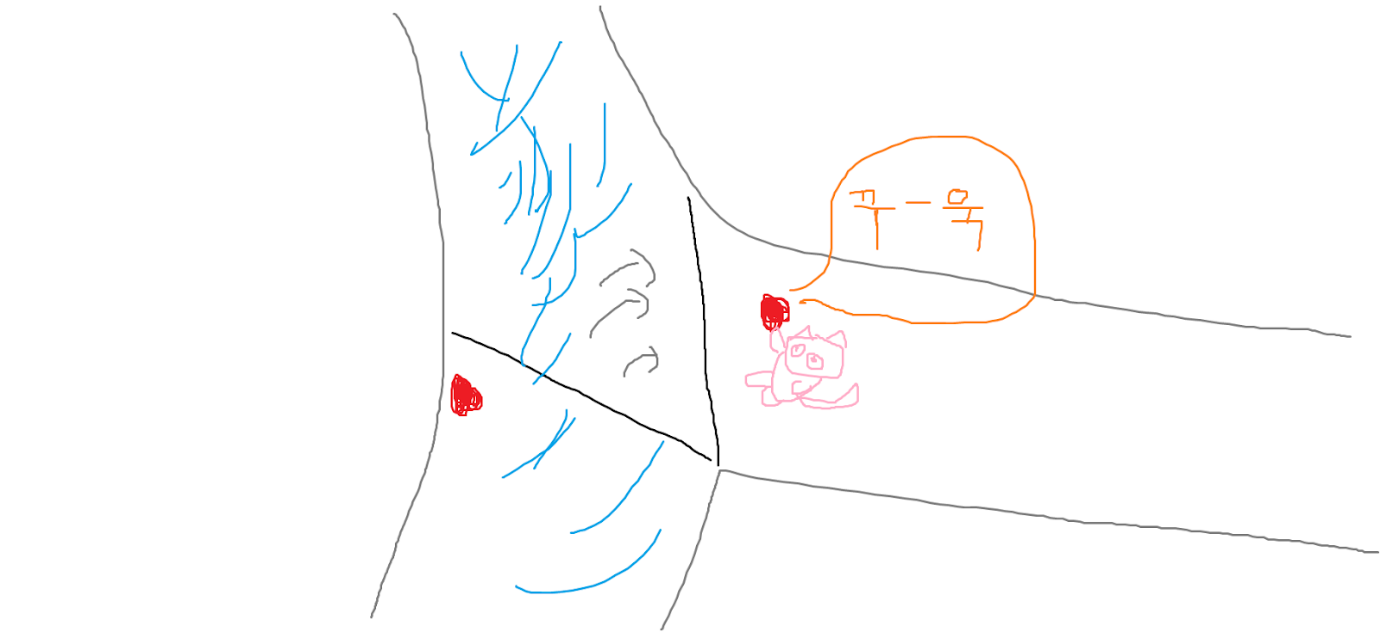 꾸-욱